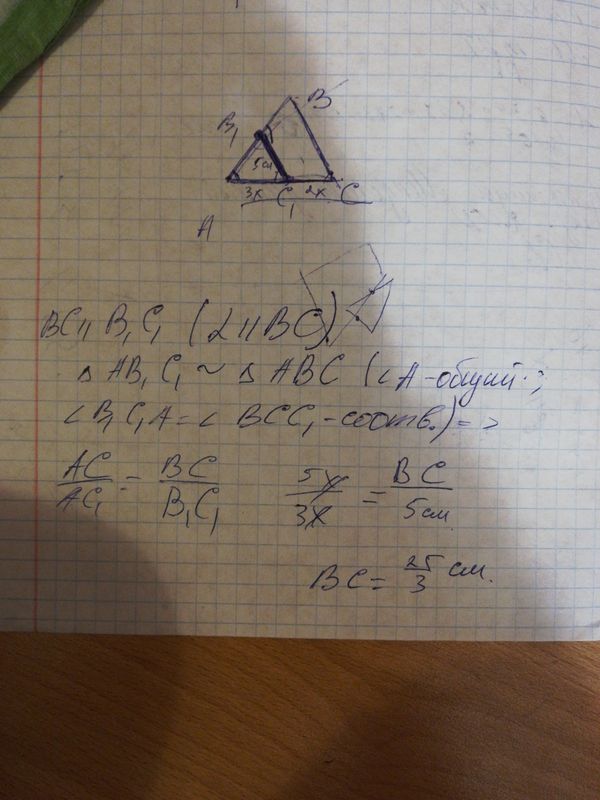 B
B₁
5см
3x C₁ 2x C
A
BC || B₁C₁ (α || BC).
△ AB₁C₁ ~ △ ABC (∠A - общий.;
∠B₁C₁A = ∠ BCC₁ - соотв.) =>
AC/AC₁ = BC/B₁C₁ 5x/3x = BC/5см.
BC = 25/3 см.